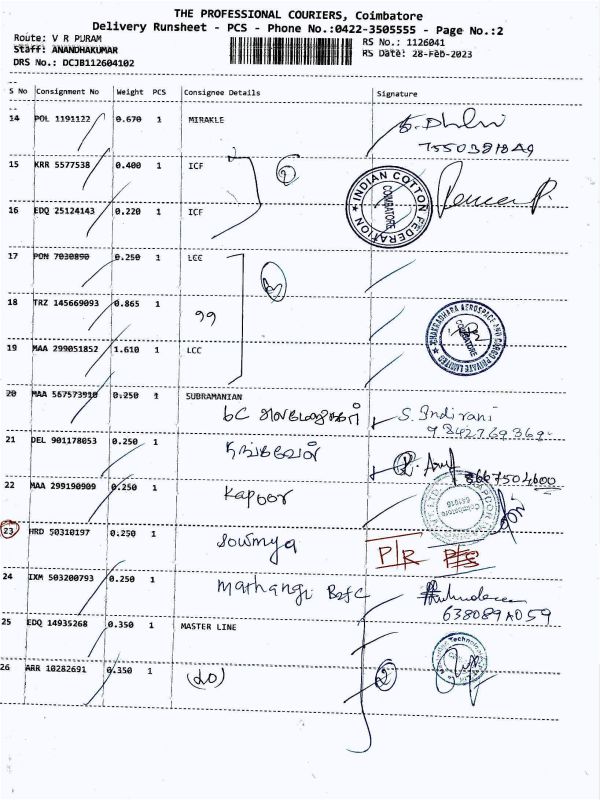 THE PROFESSIONAL COURIERS, Coimbatore
Delivery Runsheet - PCS - Phone No.:0422-3505555 - Page No.:2
Route: V R PURAM
RS No.: 1126041
Staff: ANANDHAKUMAR
RS Date: 28-Feb-2023
DRS No.: DCJB112604102
S No Consignment No Weight PCS Consignee Details Signature
14 POL 1191122 0.670 1 MIRAKLE
15 KRR 5577538 0.400 1 ICF
INDIAN COTTON FEDERATION COIMBATORE
16 EDQ 25124143 0.220 1 ICF
17 PON 7030890 0.250 1 LCC
18 TRZ 145669093 0.865 1 99
CHAKRADHARA AEROSPACE AND CARGO PRIVATE LIMITED COIMBATORE
19 MAA 299051852 1.610 1 LCC
20 MAA 567573910 0.250 1 SUBRAMANIAN
S. Indirani
21 DEL 901178053 0.250 1
22 MAA 299190909 0.250 1 Kapoor
8667504600
23 HRD 50310197 0.250 1 Sowmya P/R
24 IXM 503200793 0.250 1 Mathangi
25 EDQ 14935268 0.350 1 MASTER LINE
26 ARR 10282691 0.350 1 (do)